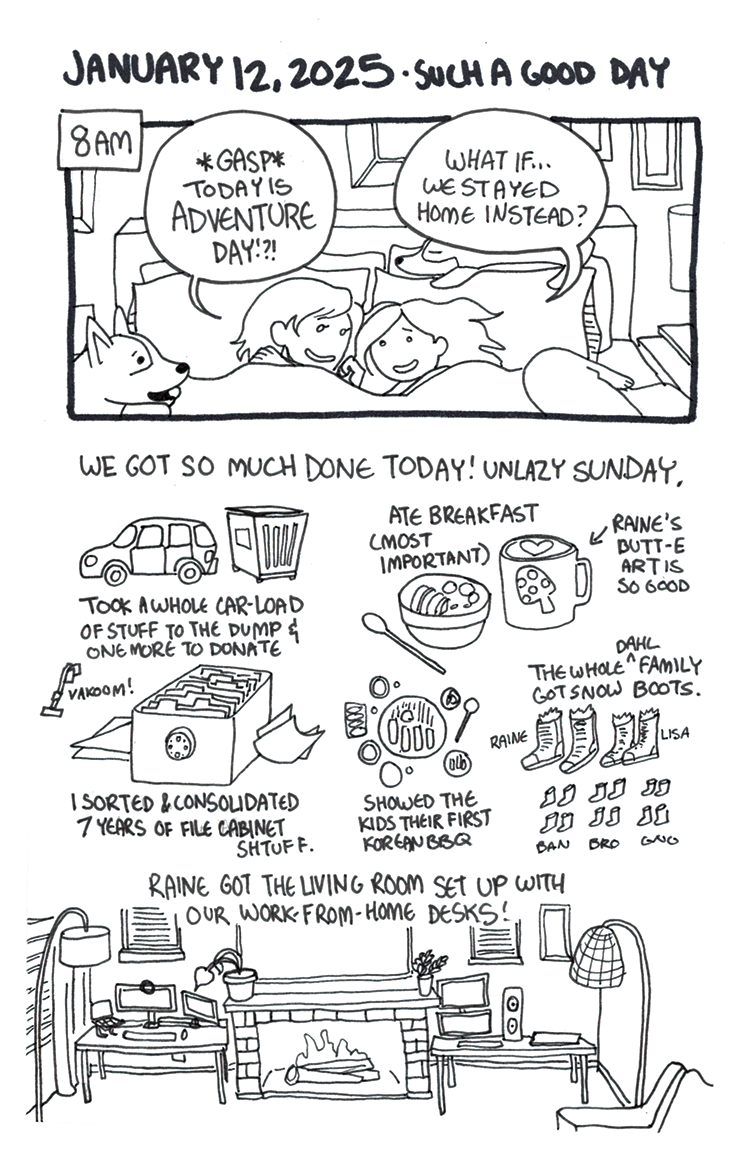 JANUARY 12, 2025 · SUCH A GOOD DAY
8AM
*GASP*
TODAY IS
ADVENTURE
DAY!?!
WHAT IF...
WE STAYED
HOME INSTEAD?
WE GOT SO MUCH DONE TODAY! UNLAZY SUNDAY.
TOOK A WHOLE CAR-LOAD
OF STUFF TO THE DUMP &
ONE MORE TO DONATE
ATE BREAKFAST
(MOST
IMPORTANT)
RAINE'S
BUTT-E
ART IS
SO GOOD
VAKOOM!
I SORTED & CONSOLIDATED
7 YEARS OF FILE CABINET
SHTUFF.
SHOWED THE
KIDS THEIR FIRST
KOREAN BBQ
DAHL
THE WHOLE ^ FAMILY
GOT SNOW BOOTS.
RAINE
LISA
BAN BRO GNO
RAINE GOT THE LIVING ROOM SET UP WITH
OUR WORK-FROM-HOME DESKS!